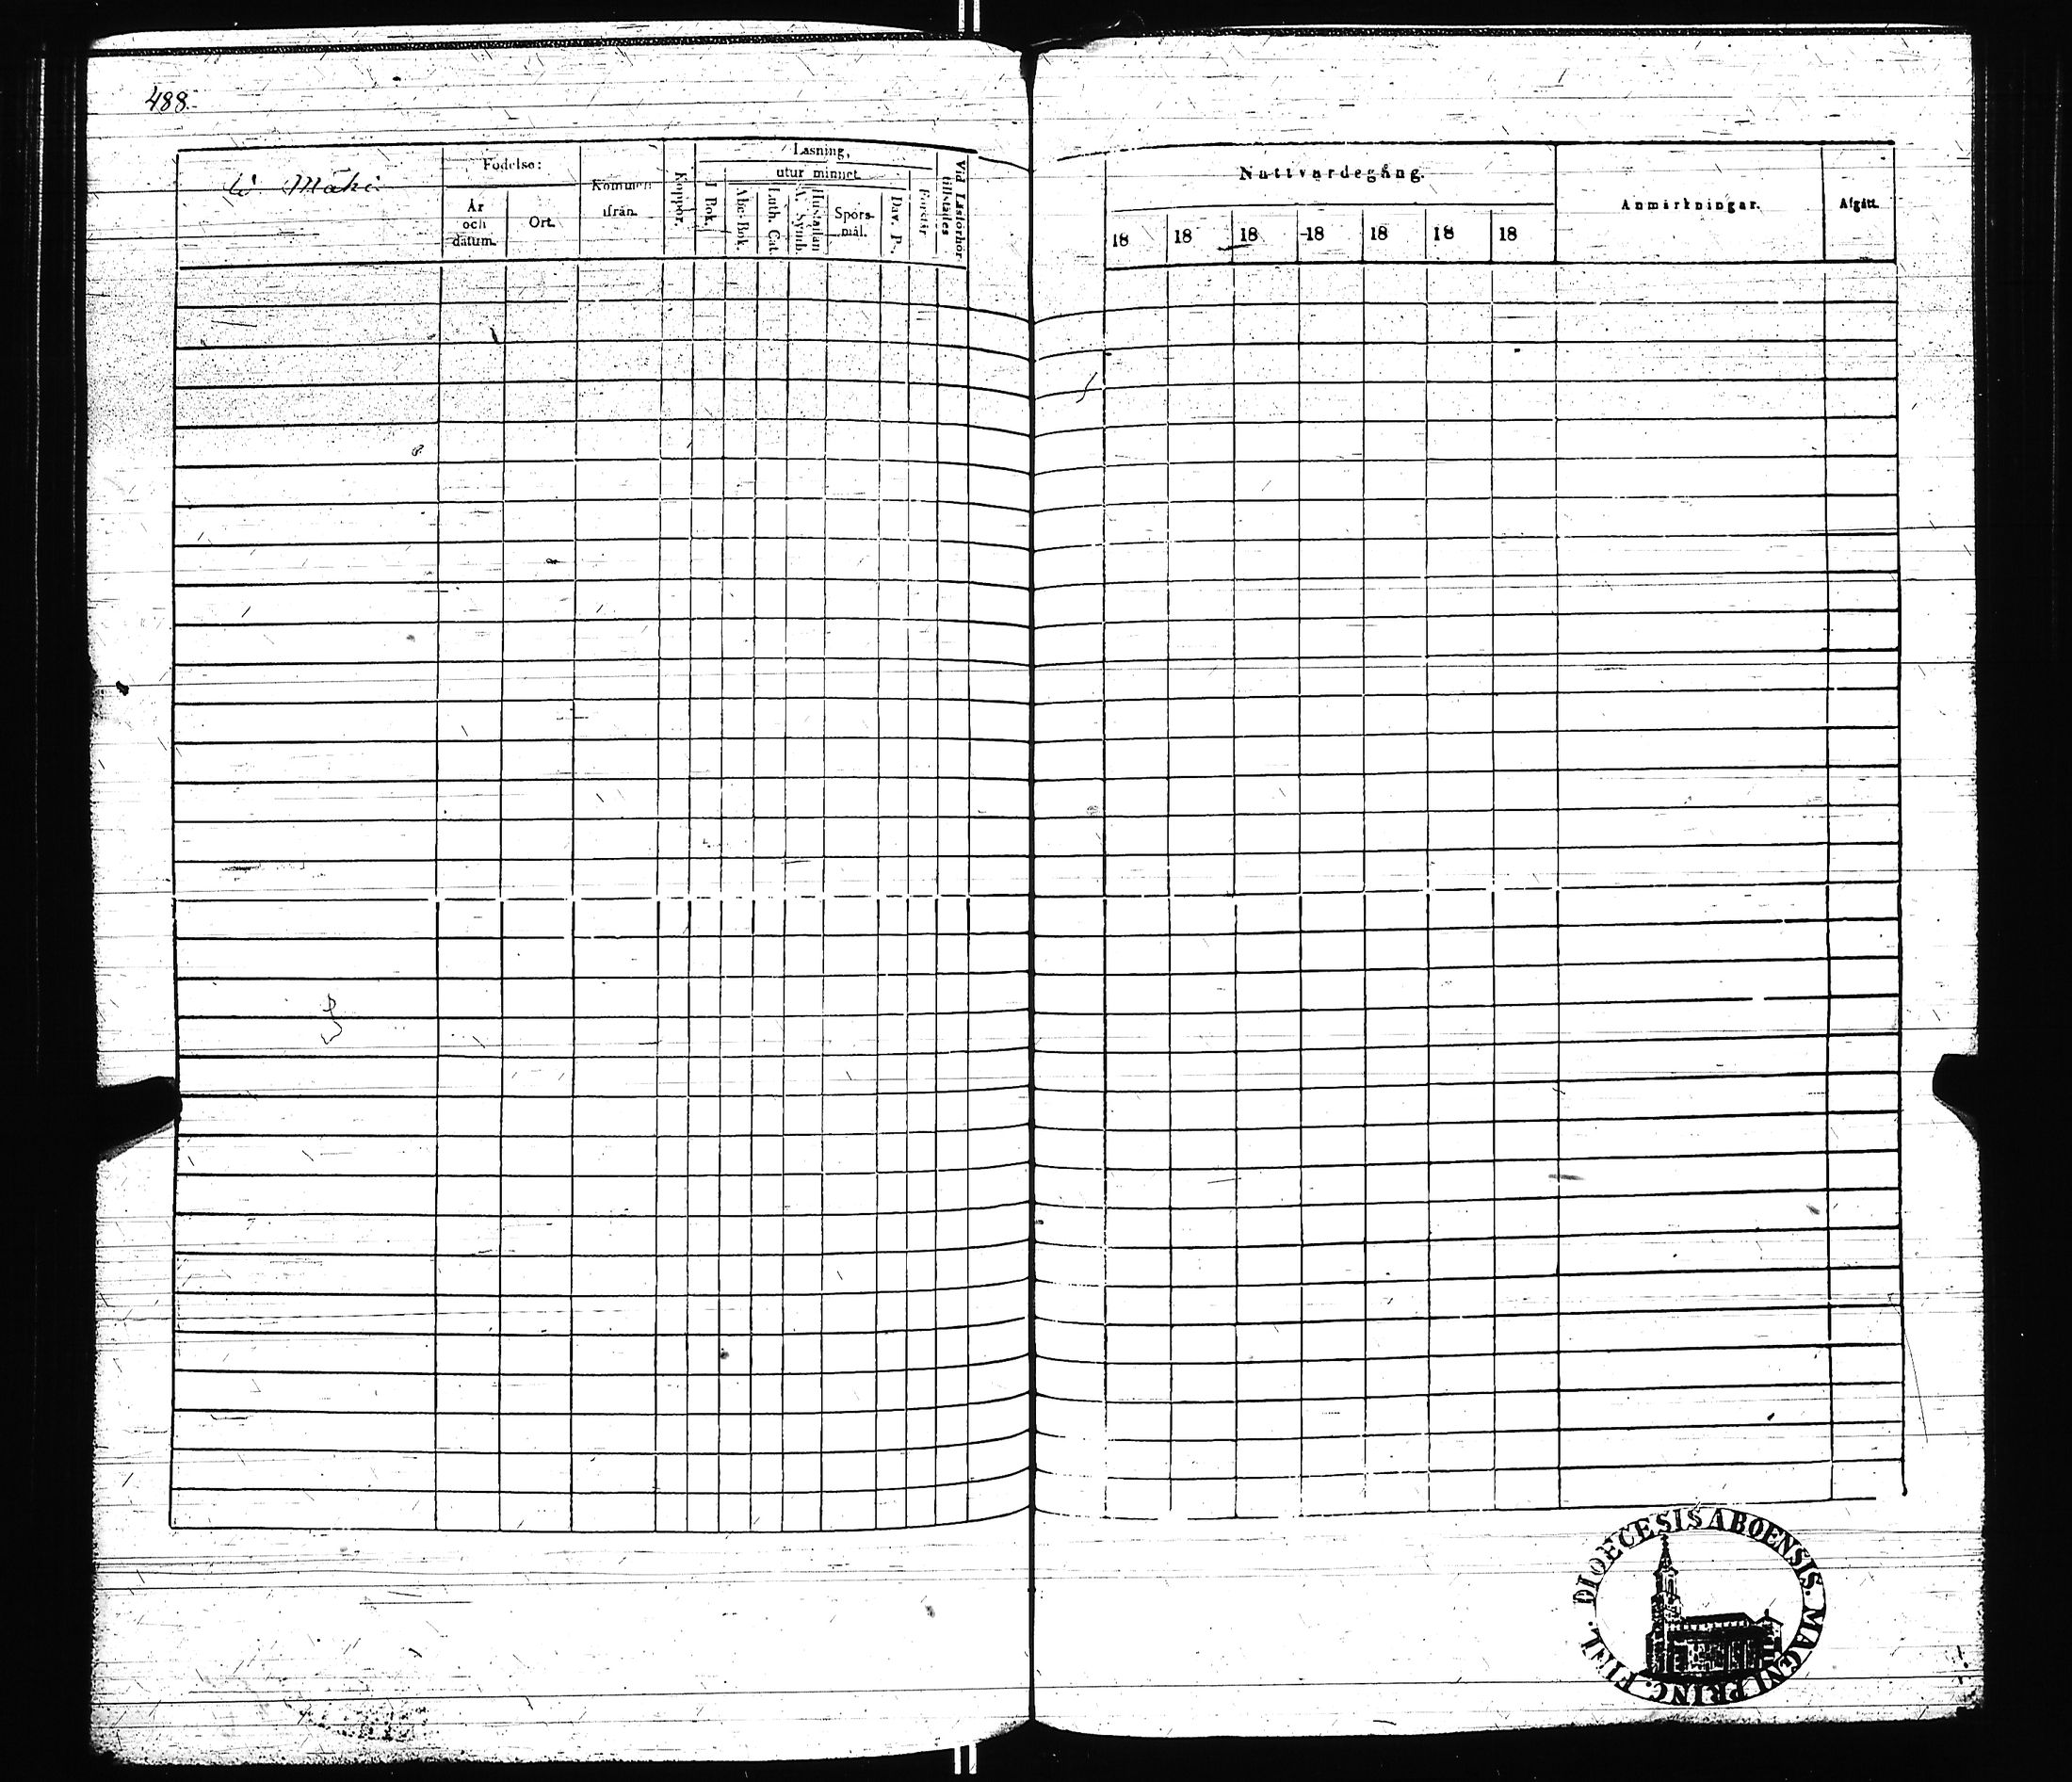 488.
Mäki
Födelse:
År
och
datum.
Ort.
Kommen
ifrån.
Koppor.
Läsning,
utur minnet.
I Bok.
Abc-Bok.
Luth. Cat.
Hustaflan
A. Symb.
Spörs-
mål.
Dav. P.
Förstår
Vid Läsförhör
tillstädes
Nattvardegång.
18 18 18 18 18 18 18
Anmärkningar.
Afgått.
DIOECESIS ABOENSIS. MAGNI PRINC. FINL.